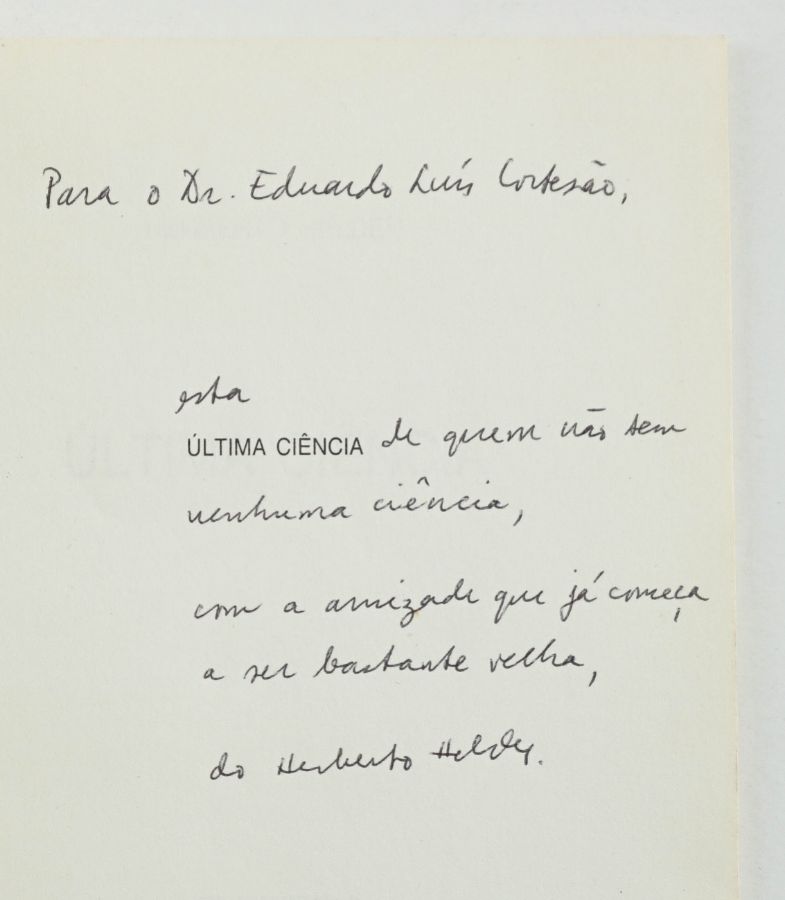 Para o Dr. Eduardo Luís Cortesão,
esta
ÚLTIMA CIÊNCIA de quem não tem
nenhuma ciência,
com a amizade que já começa
a ser bastante velha,
do Herberto Helder.